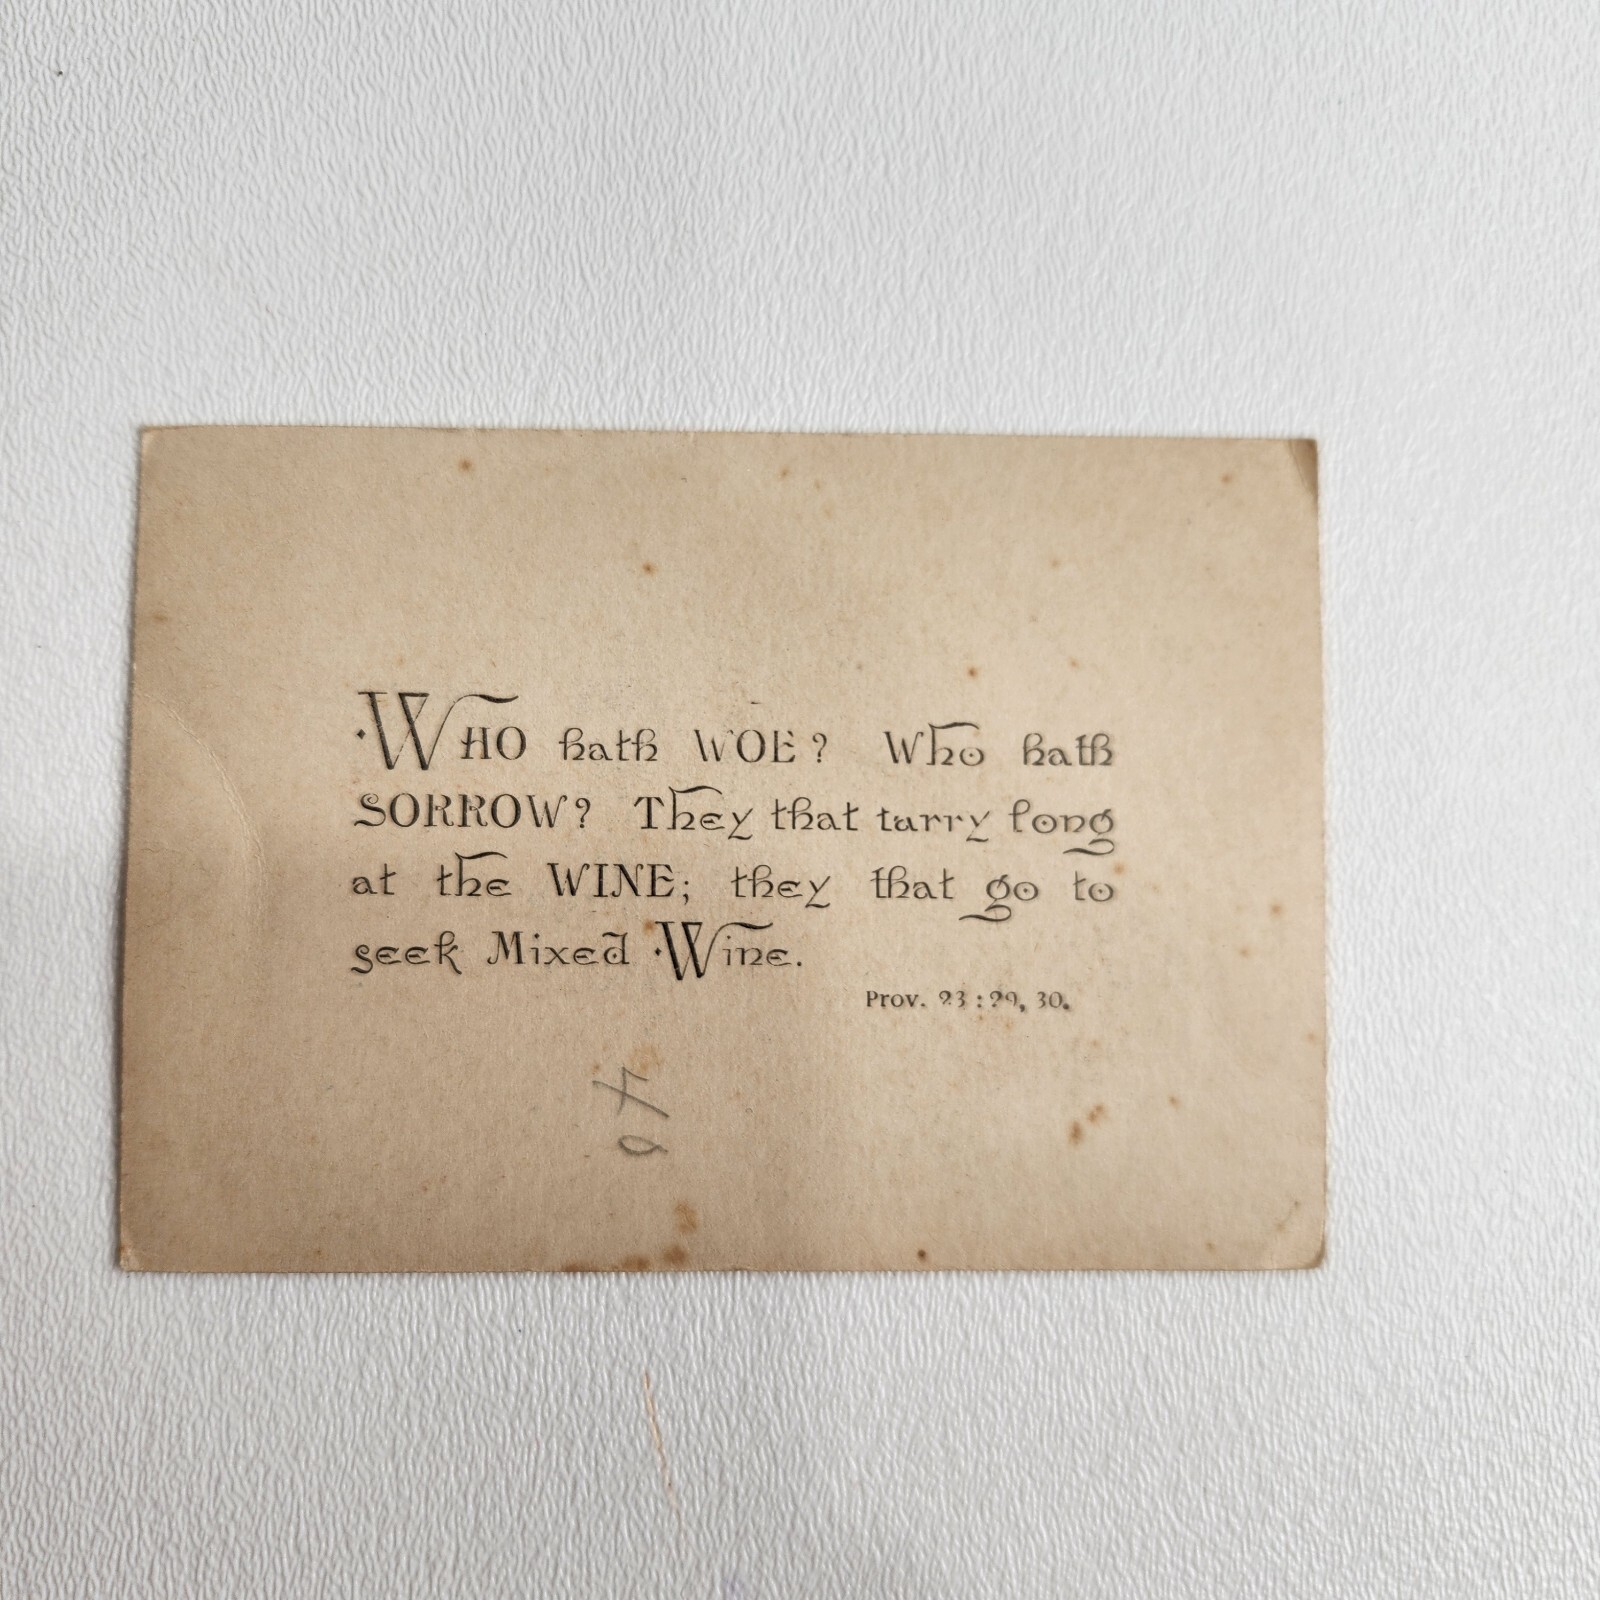 WHO hath WOE? Who hath
SORROW? They that tarry long
at the WINE; they that go to
seek Mixed Wine.
Prov. 23:29, 30.